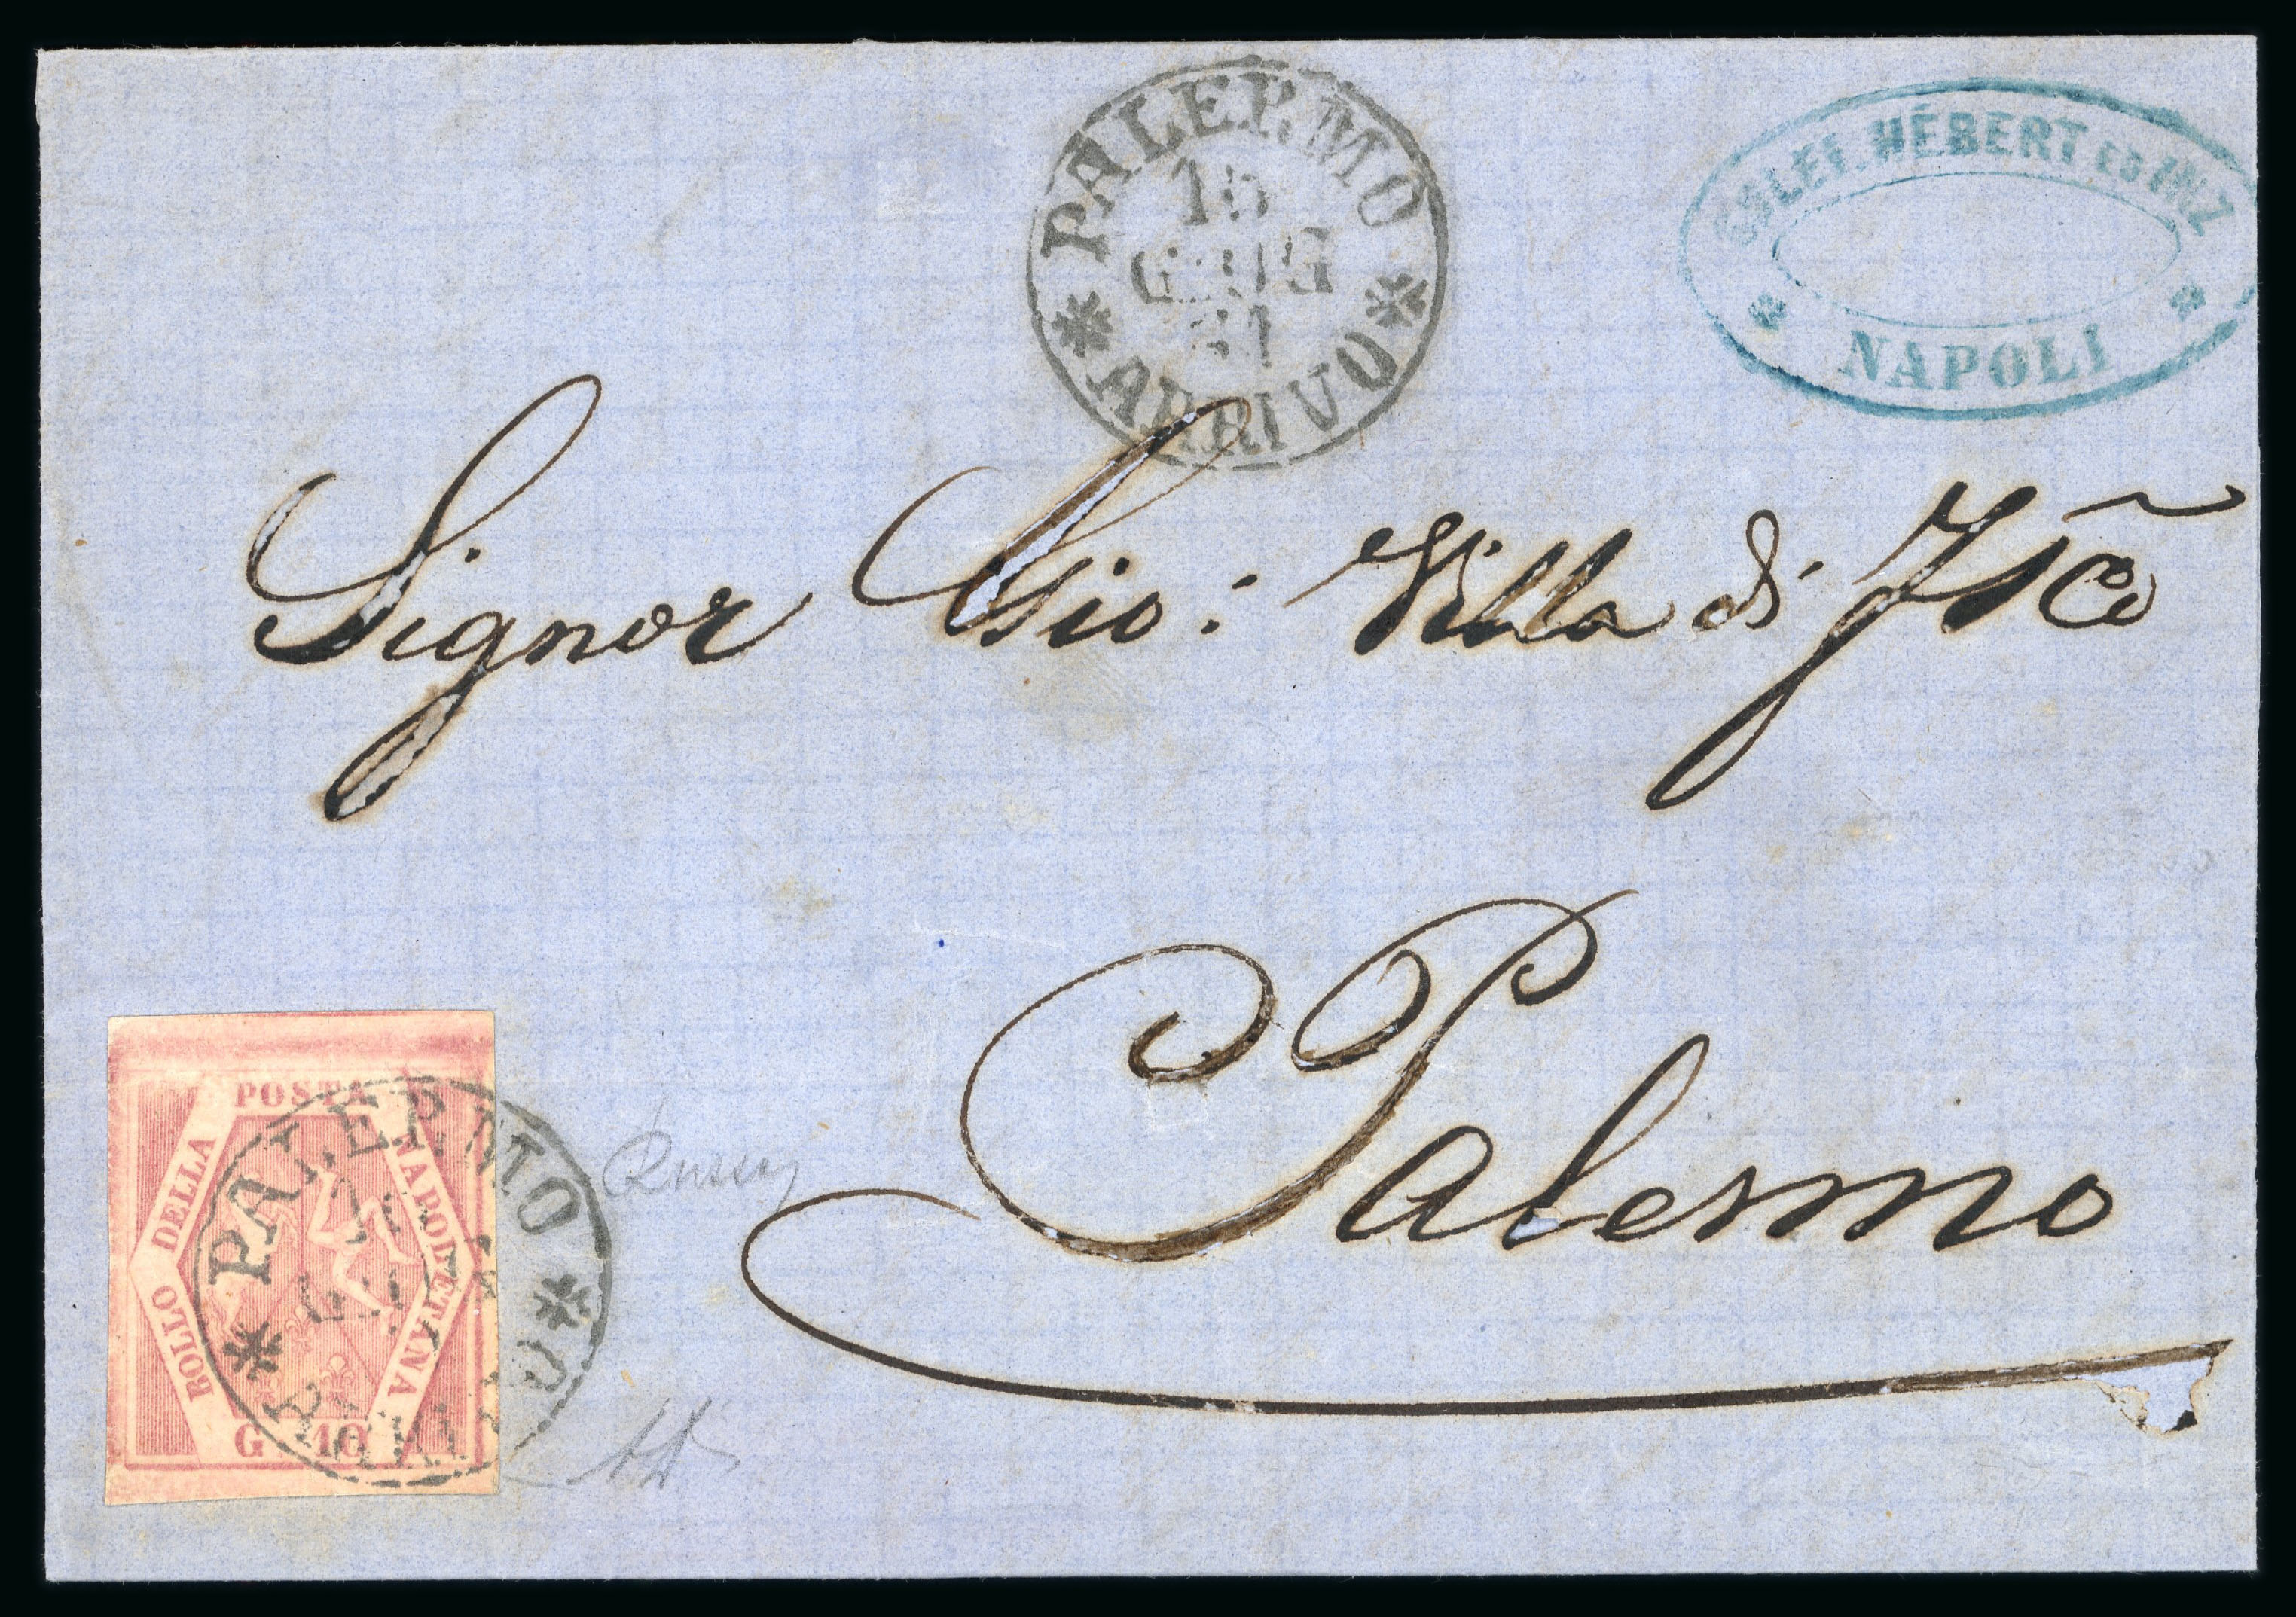 PALERMO
15
GIUG
61
* ARRIVO *
HÉBERT
* NAPOLI *
Signor Gio: Villa di
Palermo
POSTA
BOLLO DELLA
NAPOLETANA
G 10
PALERMO
* ARRIVO *